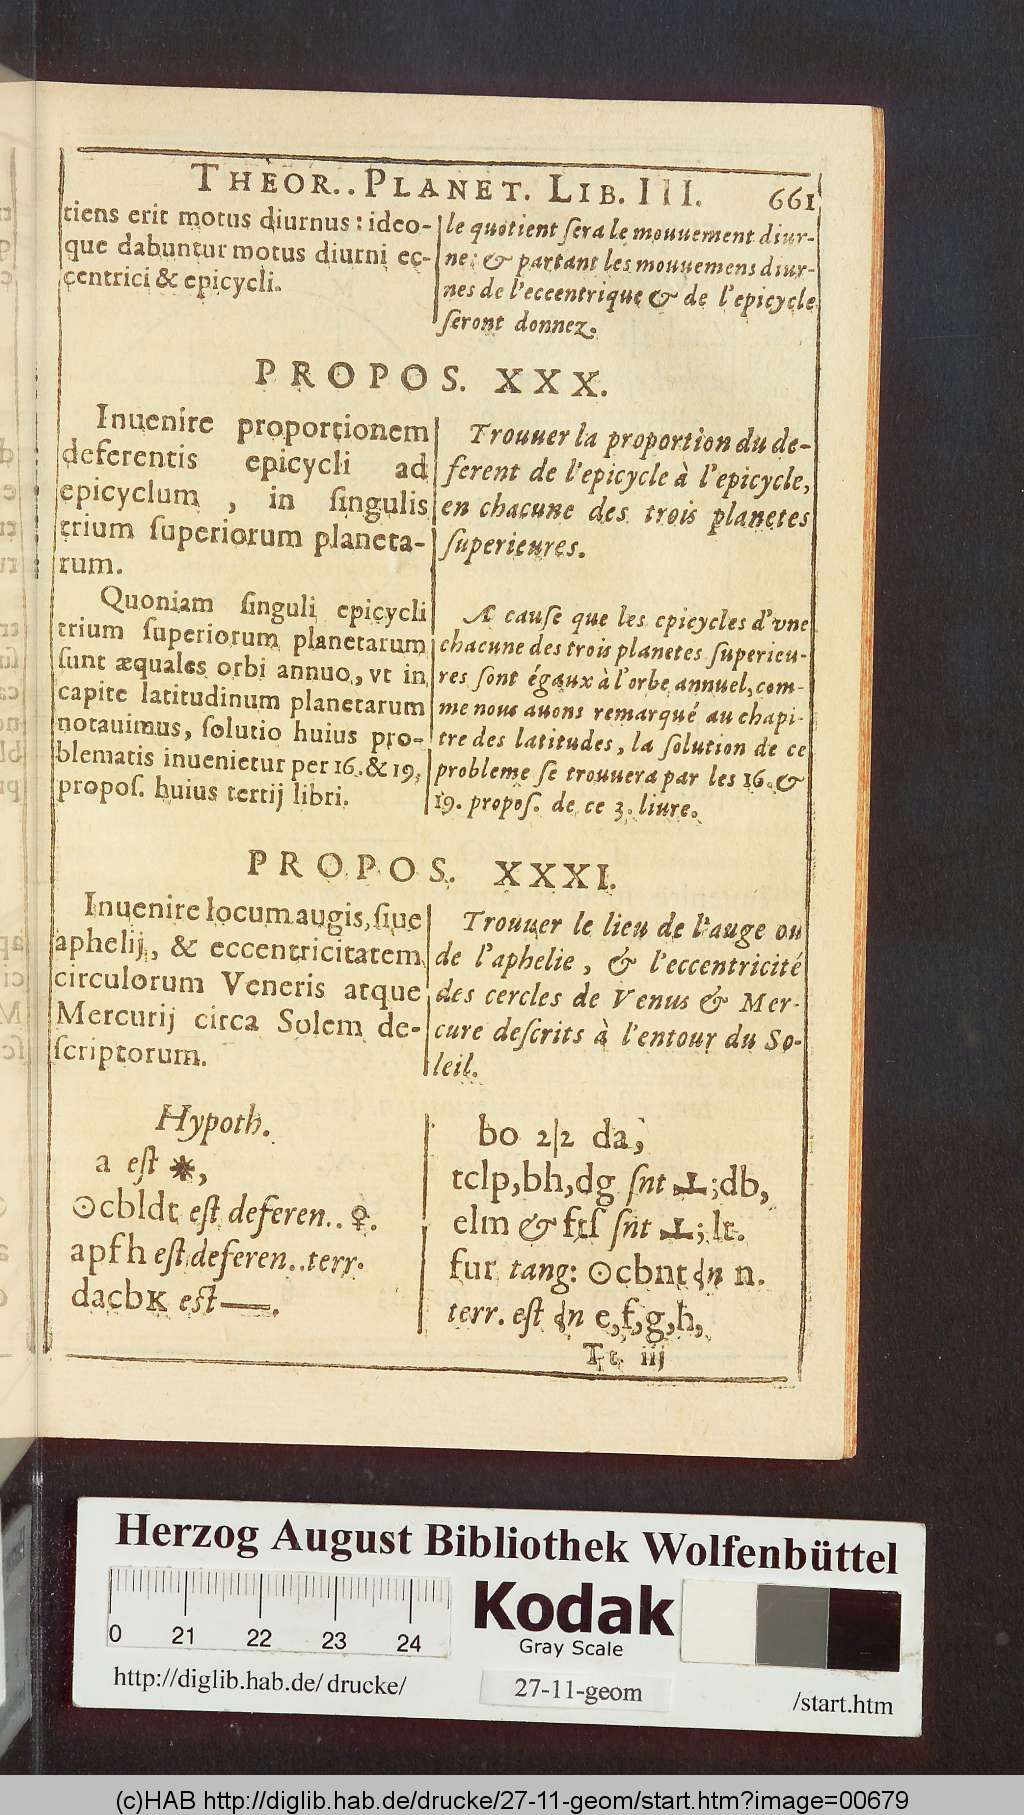 THEOR.. PLANET. LIB. III. 661
tiens erit motus diurnus: ideo-
que dabuntur motus diurni ec-
centrici & epicycli.
le quotient sera le mouuement diur-
ne: & partant les mouuemens diur-
nes de l'eccentrique & de l'epicycle
seront donnez.
PROPOS. XXX.
Inuenire proportionem
deferentis epicycli ad
epicyclum, in singulis
trium superiorum planeta-
rum.
Trouuer la proportion du de-
ferent de l'epicycle à l'epicycle,
en chacune des trois planetes
superieures.
Quoniam singuli epicycli
trium superiorum planetarum
sunt æquales orbi annuo, vt in
capite latitudinum planetarum
notauimus, solutio huius pro-
blematis inuenietur per 16. & 19,
propos. huius tertij libri.
A cause que les epicycles d'vne
chacune des trois planetes superieu-
res sont égaux à l'orbe annuel, com-
me nous auons remarqué au chapi-
tre des latitudes, la solution de ce
probleme se trouuera par les 16. &
19. propos. de ce 3. liure.
PROPOS. XXXI.
Inuenire locum augis, siue
aphelij, & eccentricitatem
circulorum Veneris atque
Mercurij circa Solem de-
scriptorum.
Trouuer le lieu de l'auge ou
de l'aphelie, & l'eccentricité
des cercles de Venus & Mer-
cure descrits à l'entour du So-
leil.
Hypoth.
a est ✷,
☉cbldt est deferen.. ♀.
apfh est deferen.. terr.
dacbK est —.
bo 2|2 da,
tclp, bh, dg snt ⊥; db,
elm & ftſ snt ⊥; lt.
fur tang: ☉cbnt n.
terr. est e, f, g, h,
Tt iij
Herzog August Bibliothek Wolfenbüttel
0 21 22 23 24
Kodak
Gray Scale
http://diglib.hab.de/drucke/
27-11-geom
/start.htm
(c)HAB http://diglib.hab.de/drucke/27-11-geom/start.htm?image=00679